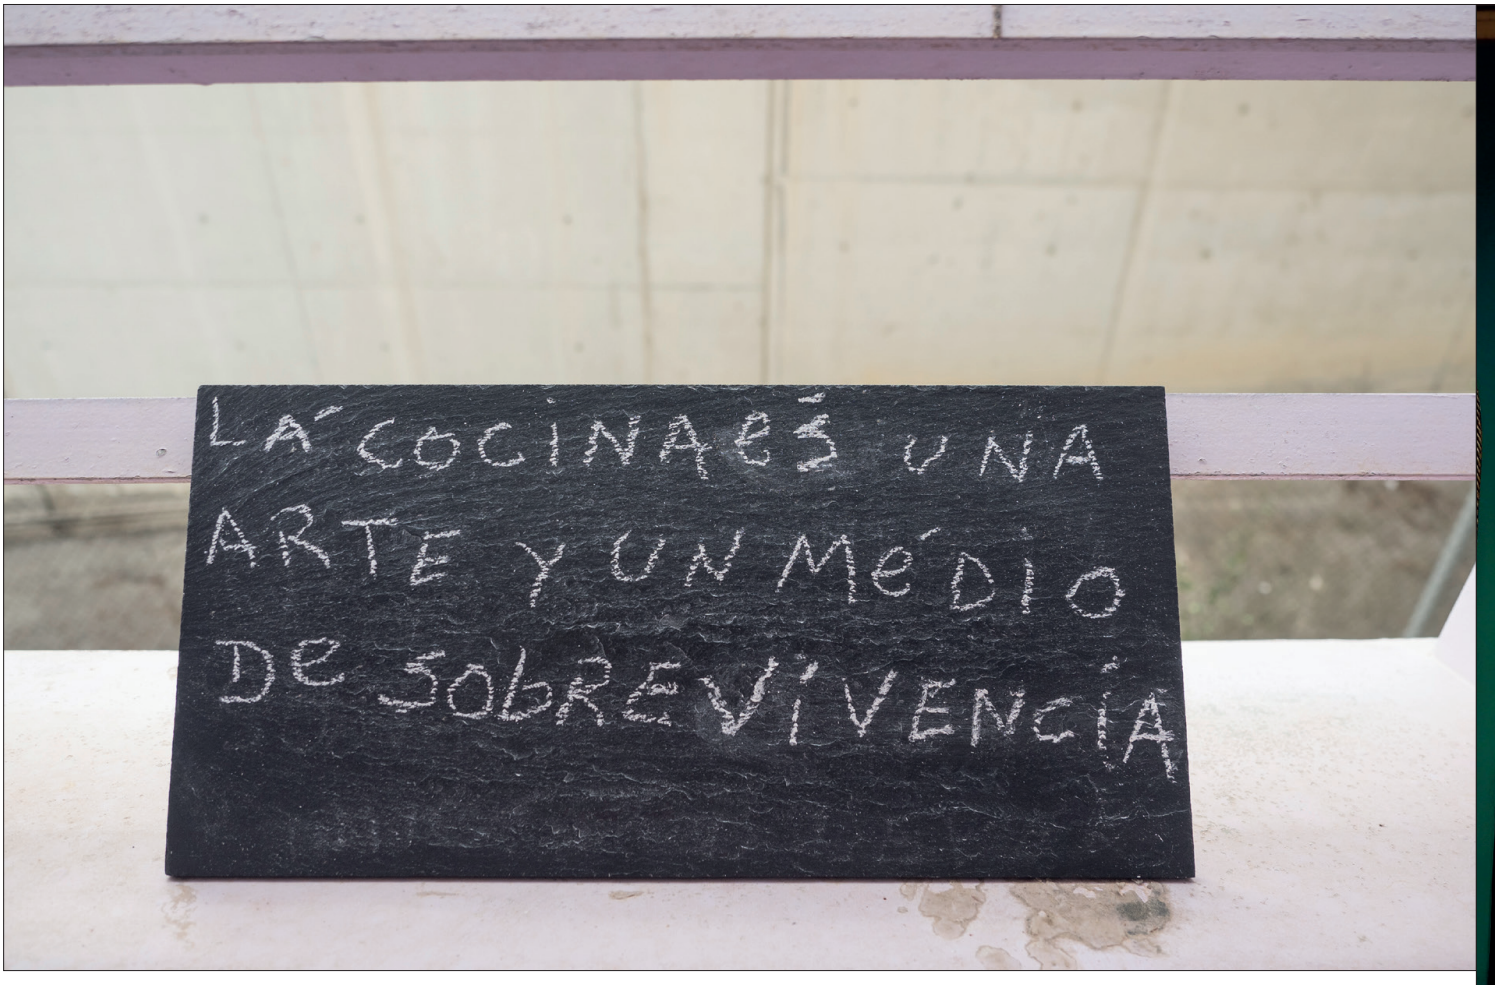 LÁ COCINA eŚ UNA
ARTE Y UN MéDIO
De SObREViVENCÍA